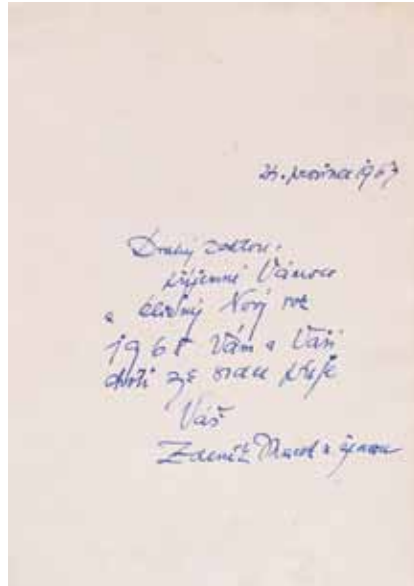 prosince 1967
Drahý doktore,
příjemné Vánoce
a klidný Nový rok
1968 Vám a Vaší
ze srdce přeje
Váš
Zdeněk a ženou